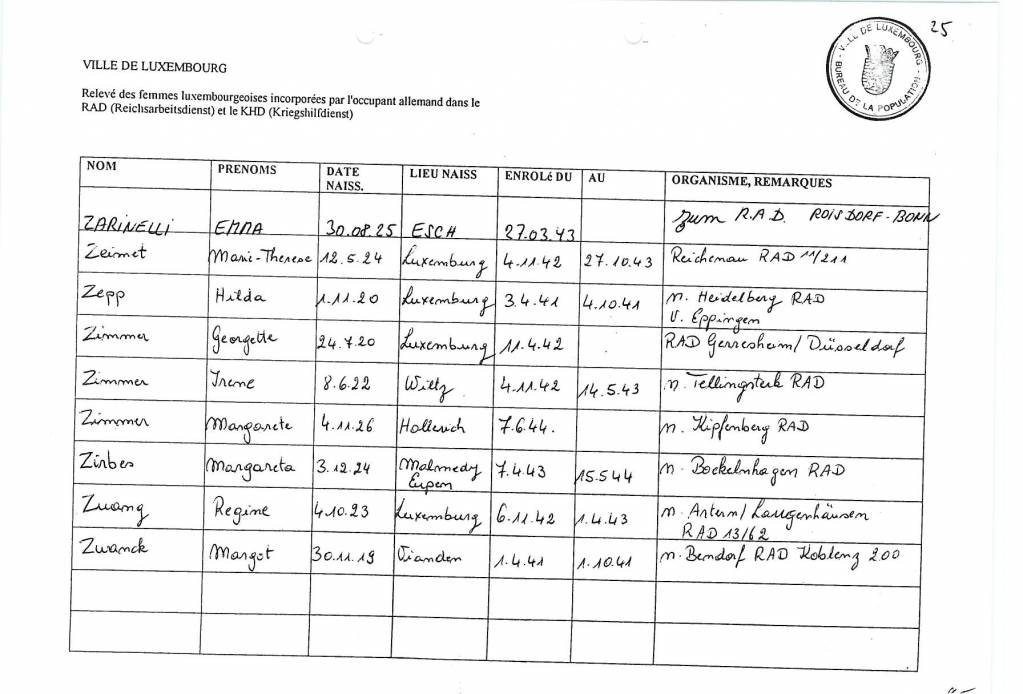 25
VILLE DE LUXEMBOURG
BUREAU DE LA POPULATION
VILLE DE LUXEMBOURG
Relevé des femmes luxembourgeoises incorporées par l'occupant allemand dans le
RAD (Reichsarbeitsdienst) et le KHD (Kriegshilfdienst)
NOM PRENOMS DATE NAISS. LIEU NAISS ENROLé DU AU ORGANISME, REMARQUES
ZARINELLI EMMA 30.08.25 ESCH 27.03.43 zum R.A.D. ROISDORF-BONN
Zeimet Marie-Therese 12.5.24 Luxemburg 4.11.42 27.10.43 Reichenau RAD 11/211
Zepp Hilda 1.11.20 Luxemburg 3.4.41 4.10.41 n. Heidelberg RAD
V. Eppingen
Zimmer Georgette 24.7.20 Luxemburg 11.4.42 RAD Gerresheim/Düsseldorf
Zimmer Irene 8.6.22 Wiltz 4.11.42 14.5.43 n. Tellingstedt RAD
Zimmer Margarete 4.11.26 Hollerich 7.6.44. n. Kipfenberg RAD
Zirbes Margareta 3.12.24 Malmedy 7.4.43 15.5.44 n. Bockelnhagen RAD
Eupen
Zuang Regine 4.10.23 Luxemburg 6.11.42 1.4.43 n. Langenhäusen
RAD 13/62
Zwanck Margot 30.11.19 Vianden 1.4.41 1.10.41 n. Bendorf RAD Koblenz 200